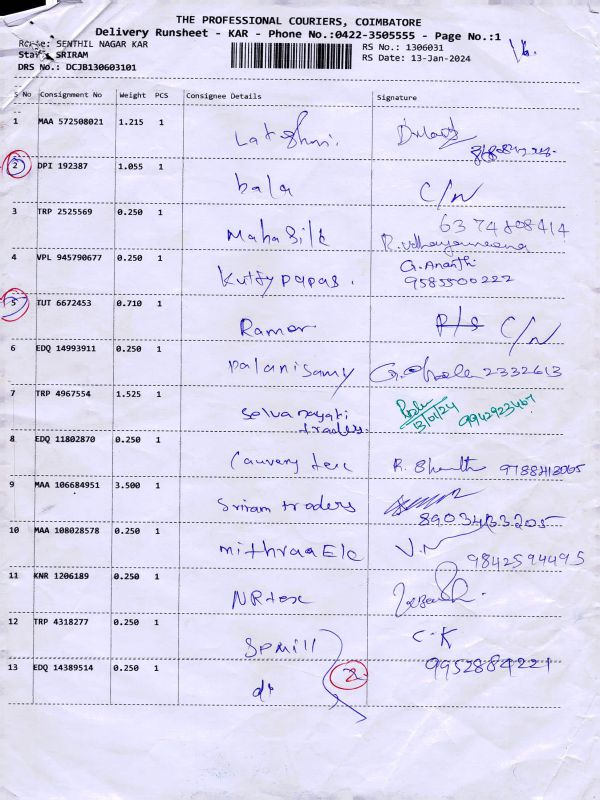 THE PROFESSIONAL COURIERS, COIMBATORE
Delivery Runsheet - KAR - Phone No.:0422-3505555 - Page No.:1
SENTHIL NAGAR KAR
RS No.: 1306031
SRIRAM
RS Date: 13-Jan-2024
DRS No.: DCJB130603101
S No Consignment No Weight PCS Consignee Details Signature
1 MAA 572508021 1.215 1
2 DPI 192387 1.055 1 bala C/N
3 TRP 2525569 0.250 1 Maha Silk
4 VPL 945790677 0.250 1 Kutty papas. G. Ananthi
9585500222
5 TUT 6672453 0.710 1 C/N
6 EDQ 14993911 0.250 1 palanisamy 2332613
7 TRP 4967554 1.525 1
traders. 13/01/24 9942923467
8 EDQ 11802870 0.250 1 Cauvery tex
9 MAA 106684951 3.500 1 Sriram traders
10 MAA 108028578 0.250 1 mithraa Ele V.N
9842594495
11 KNR 1206189 0.250 1 NR tex
12 TRP 4318277 0.250 1 SP mill C.K
9952884221
13 EDQ 14389514 0.250 1 do
2